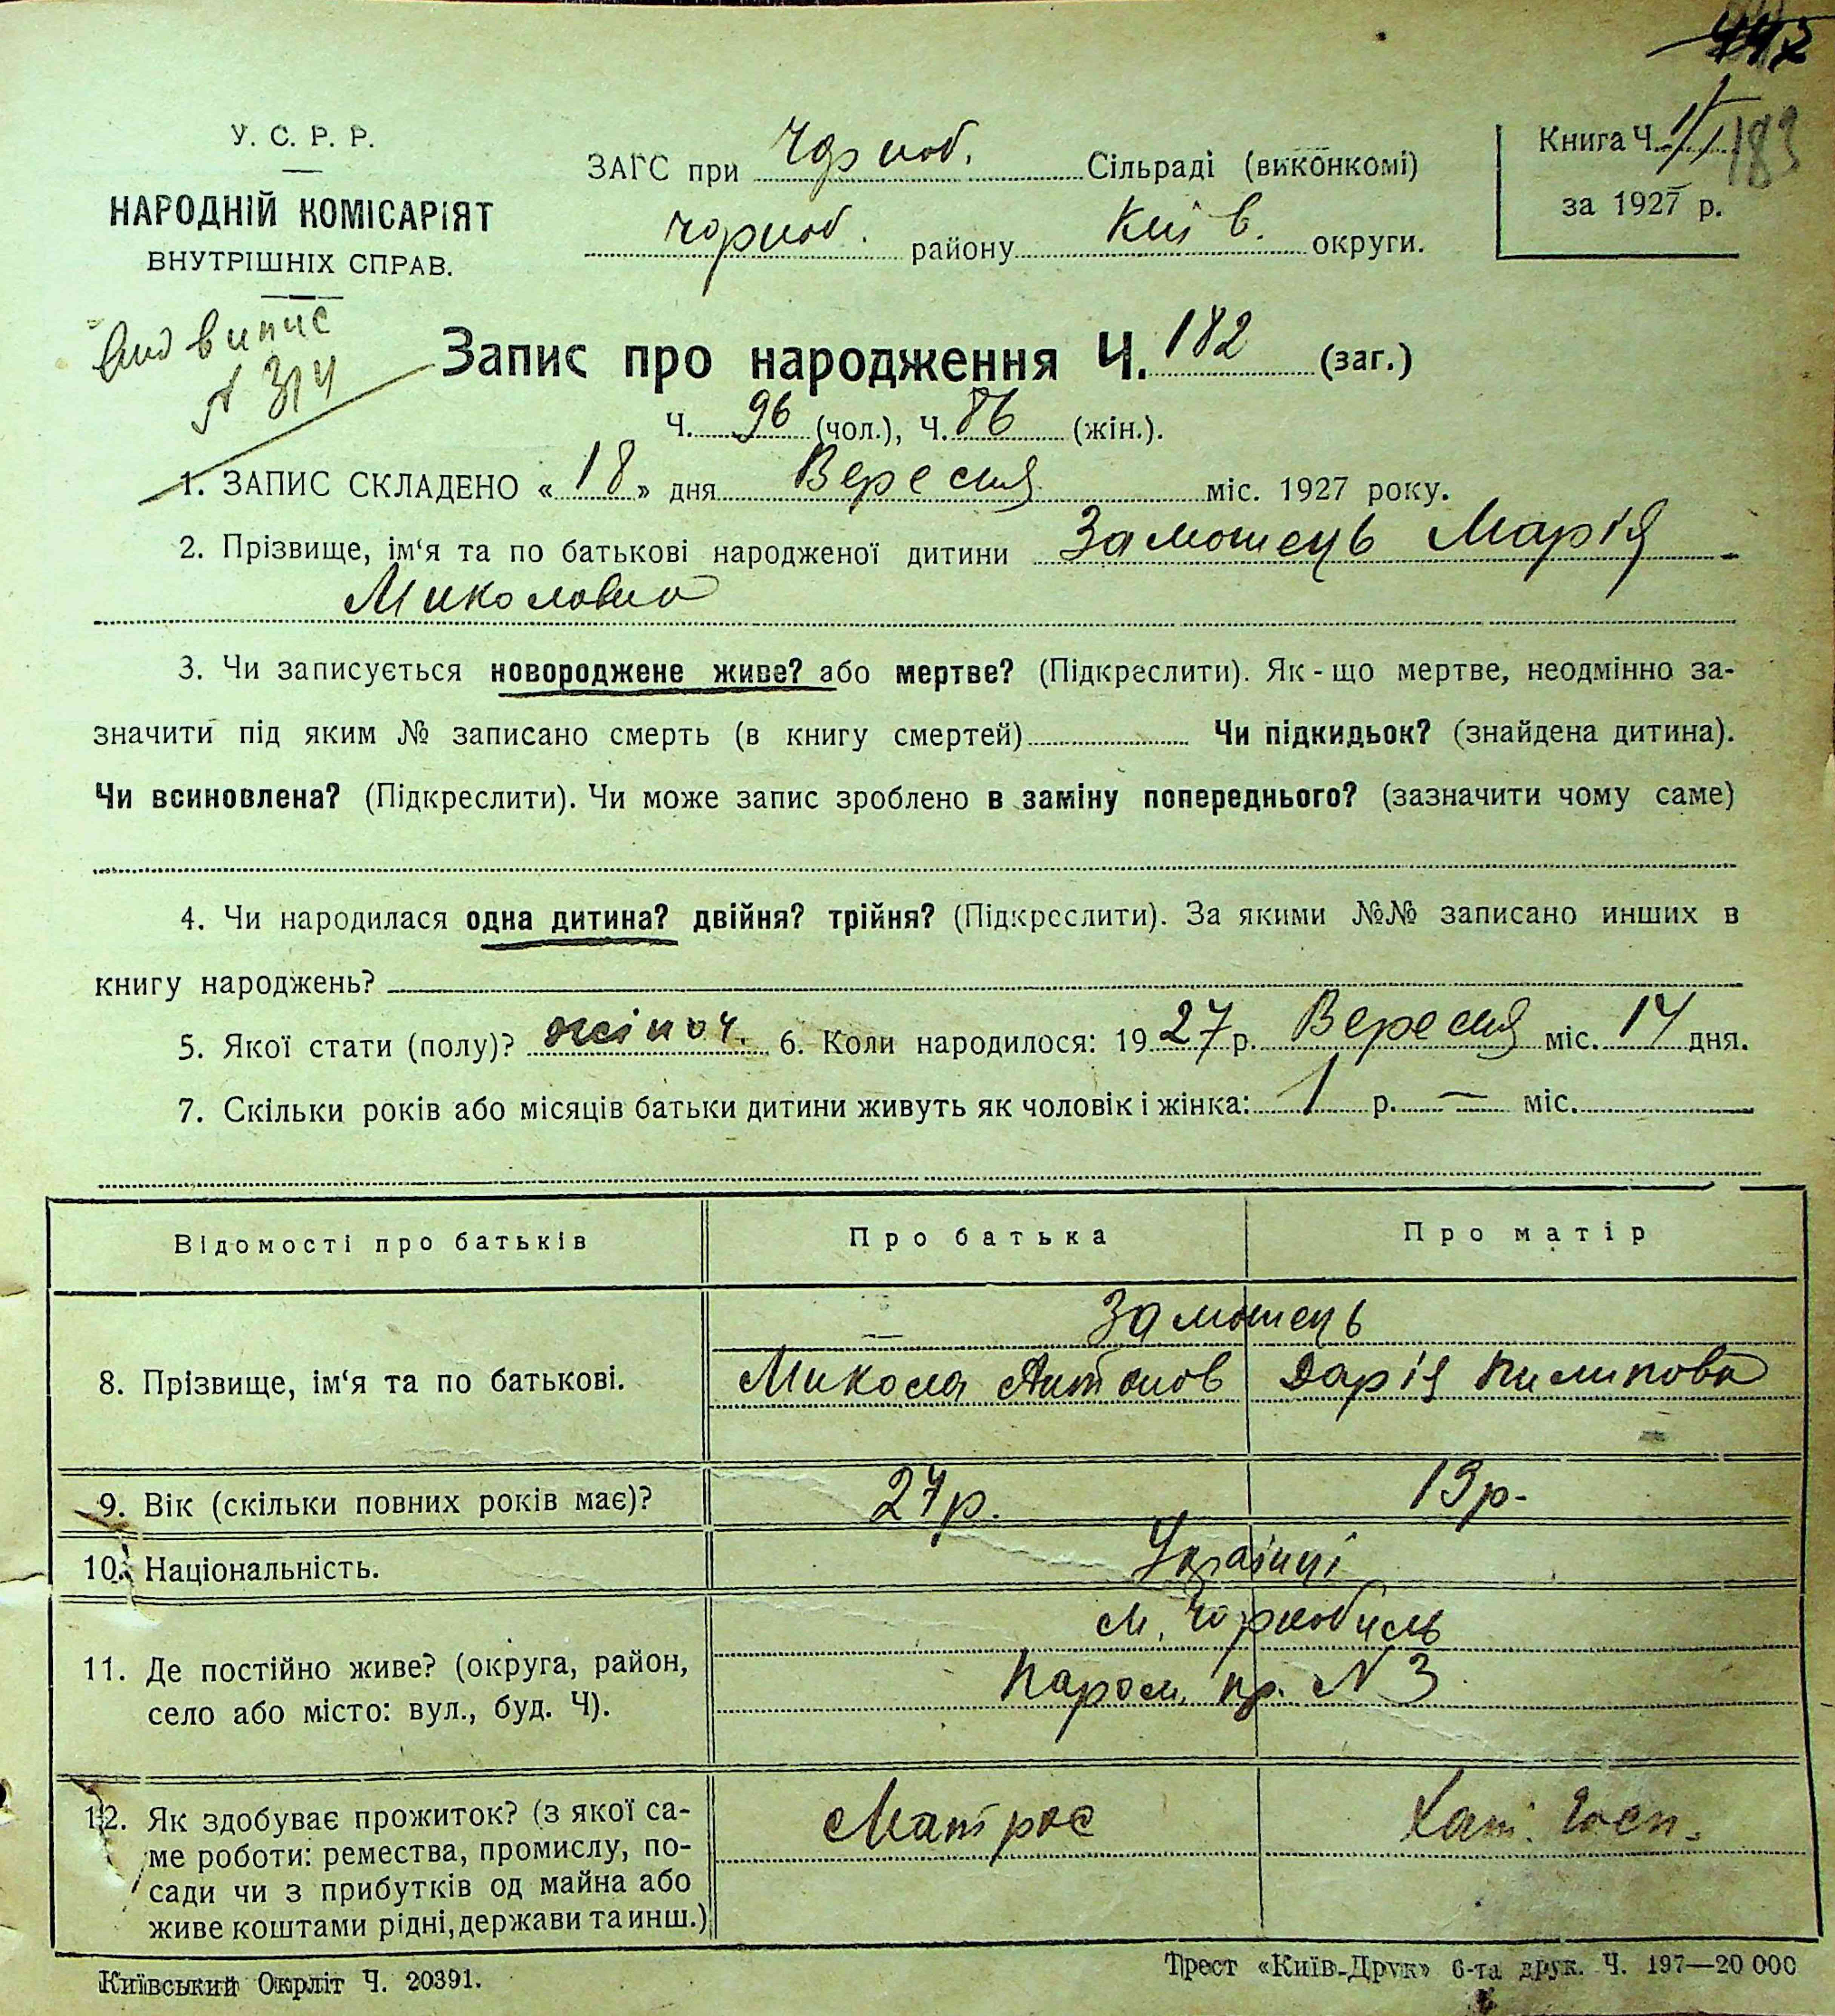 442
У. С. Р. Р.
НАРОДНІЙ КОМІСАРІЯТ
ВНУТРІШНІХ СПРАВ.
ЗАГС при Чорноб. Сільраді (виконкомі)
Чорноб. району Київ. округи.
Книга Ч. 183
за 1927 р.
випис
№ 314
Запис про народження Ч. 182 (заг.)
Ч. 96 (чол.), Ч. 86 (жін.).
1. ЗАПИС СКЛАДЕНО « 18 » дня Вересня міс. 1927 року.
2. Прізвище, ім'я та по батькові народженої дитини Замошець Марія
Миколовна
3. Чи записується новороджене живе? або мертве? (Підкреслити). Як-що мертве, неодмінно за-
значити під яким № записано смерть (в книгу смертей) Чи підкидьок? (знайдена дитина).
Чи всиновлена? (Підкреслити). Чи може запис зроблено в заміну попереднього? (зазначити чому саме)
4. Чи народилася одна дитина? двійня? трійня? (Підкреслити). За якими №№ записано инших в
книгу народжень?
5. Якої стати (полу)? жіноч. 6. Коли народилося: 1927 р. Вересня міс. 14 дня.
7. Скільки років або місяців батьки дитини живуть як чоловік і жінка: 1 р. — міс.
Відомості про батьків Про батька Про матір
Замошець
8. Прізвище, ім'я та по батькові. Микола Антонов Дарія Пилипова
9. Вік (скільки повних років має)? 27р. 19р.
10. Національність. Українці
м. Чорнобиль
11. Де постійно живе? (округа, район, Паром. пр. N 3
село або місто: вул., буд. Ч).
12. Як здобуває прожиток? (з якої са- Матрос Хат. Госп.
ме роботи: ремества, промислу, по-
сади чи з прибутків од майна або
живе коштами рідні, держави та инш.)
Київський Окрліт Ч. 20391.
Трест «Київ-Друк» 6-та друк. Ч. 197—20 000